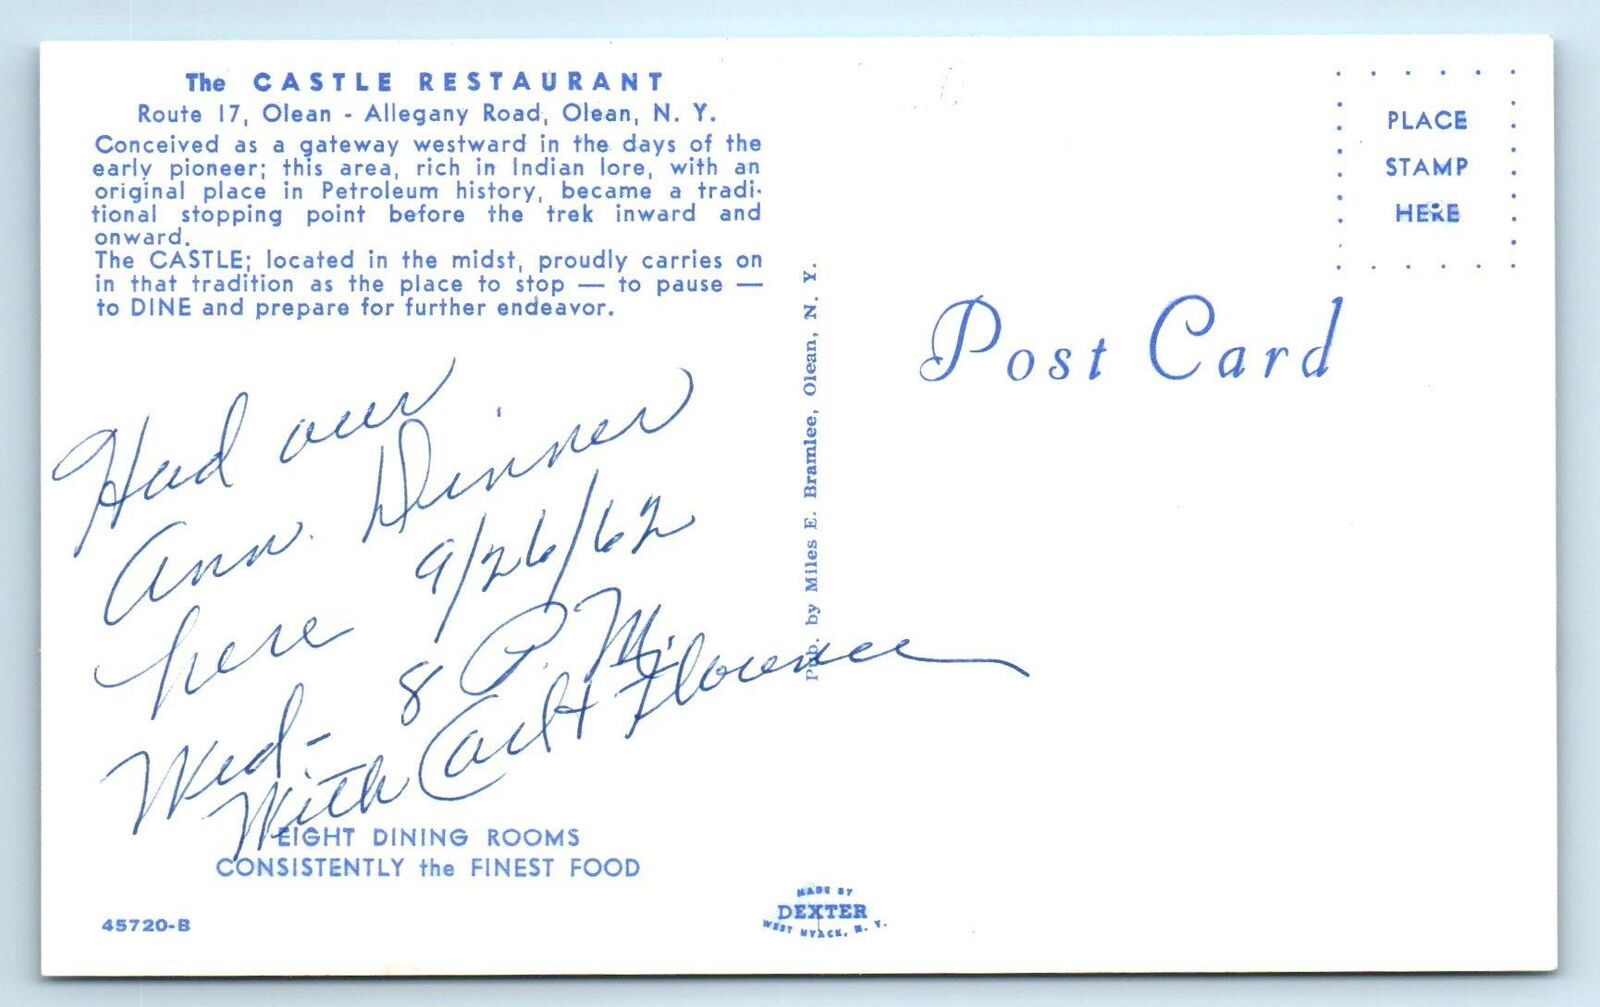 The CASTLE RESTAURANT
Route 17, Olean - Allegany Road, Olean, N. Y.
Conceived as a gateway westward in the days of the
early pioneer; this area, rich in Indian lore, with an
original place in Petroleum history, became a tradi-
tional stopping point before the trek inward and
onward.
The CASTLE; located in the midst, proudly carries on
in that tradition as the place to stop — to pause —
to DINE and prepare for further endeavor.
Had our
Ann. Dinner
here 9/26/62
Wed- 8 P.M.
With Carl + Florence
EIGHT DINING ROOMS
CONSISTENTLY the FINEST FOOD
45720-B
Pub. by Miles E. Bramlee, Olean, N. Y.
MADE BY
DEXTER
WEST NYACK, N. Y.
Post Card
PLACE
STAMP
HERE